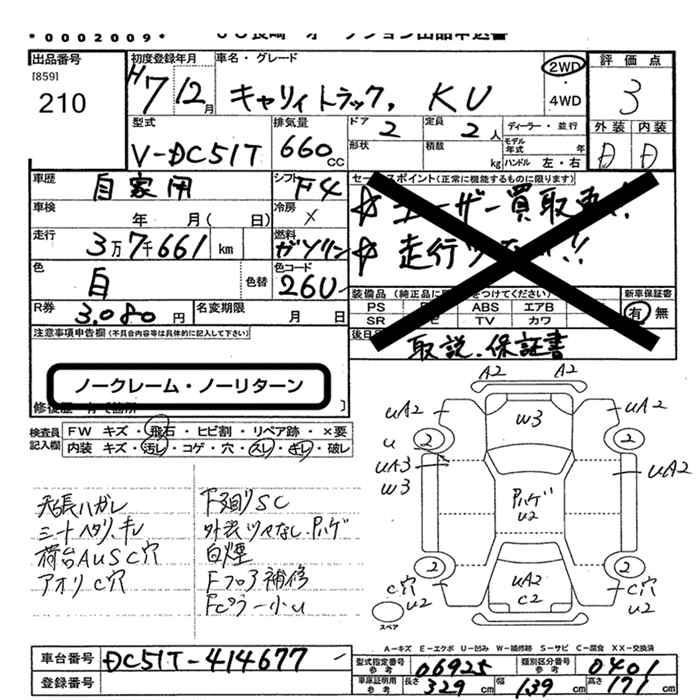 *0002009*
JU長崎 オークション出品申込書
出品番号
[859]
210
初度登録年月
H7 12月
車名・グレード
キャリイトラック, KU
2WD
・
4WD
評価点
3
外装 内装
D D
型式
V-DC51T
排気量
660 CC
ドア
2
定員
2人
形状
積載
kg
ディーラー・並行
モデル年式 年
ハンドル 左・右
車歴
自家用
シフト
F4
車検
年 月( 日)
冷房
×
走行
3万7千661 km
燃料
ガソリン
色
白
色替
色コード
26U
R券
3,080円
名変期限
月 日
セールスポイント(正常に機能するものに限ります)
☆ユーザー買取車!
☆走行
装備品 (純正品に をつけてください)
PS ABS エアB
SR TV カワ
新車保証書
有・無
取説.保証書
注意事項申告欄(不具合内容等は具体的に記入して下さい)
ノークレーム・ノーリターン
検査員記入欄
FW キズ・飛石・ヒビ割・リペア跡・×要
内装 キズ・汚レ・コゲ・穴・スレ・キレ・破レ
天張ハガレ
シートヘタリ、キレ
荷台AUSC穴
アオリC穴
下廻りSC
外装ツヤなし.Pハゲ
白煙
Fフロア補修
Fピラー小U
A2 A2
UA2 W3 UA2
U 2 2
UA3
W3
UA2
Pハゲ
U2
2 2
UA2
C2
C穴
U2
C穴
U2
スペア
A-キズ E-エクボ U-凹み W-補修跡 S-サビ C-腐食 XX-交換済
車台番号
DC51T-414677
登録番号
型式指定番号
参考
06925
類別区分番号
参考
0401
車庫証明用
参考
長さ 329 cm 幅 139 cm 高さ 171 cm